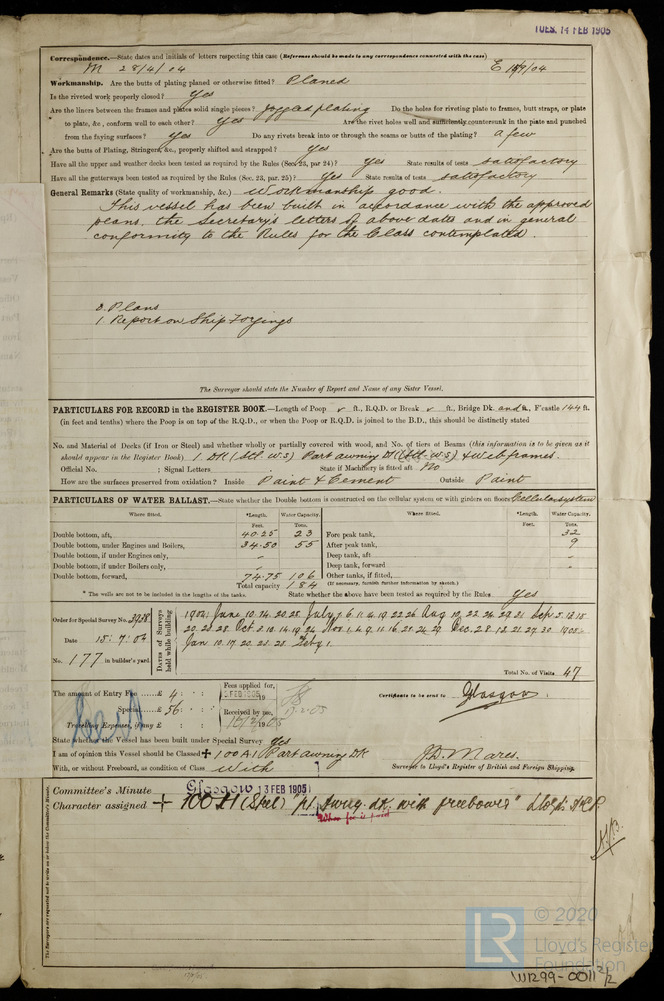 TUES. 14 FEB 1905
Correspondence.—State dates and initials of letters respecting this case (References should be made to any correspondence connected with the case)
M 28/4/04 E 19/9/04
Workmanship. Are the butts of plating planed or otherwise fitted? Planed
Is the riveted work properly closed? Yes
Are the liners between the frames and plates solid single pieces? Joggled plating Do the holes for riveting plate to frames, butt straps, or plate
to plate, &c., conform well to each other? Yes Are the rivet holes well and sufficiently countersunk in the plate and punched
from the faying surfaces? Yes Do any rivets break into or through the seams or butts of the plating? a few
Are the butts of Plating, Stringers, &c., properly shifted and strapped? Yes
Have all the upper and weather decks been tested as required by the Rules (Sec. 23, par 24)? Yes State results of tests satisfactory
Have all the gutterways been tested as required by the Rules (Sec. 23, par. 25)? Yes State results of tests satisfactory
General Remarks (State quality of workmanship, &c.) Workmanship good.
This vessel has been built in accordance with the approved
plans, the Secretary's letters of above dates and in general
conformity to the Rules for the Class contemplated.
3. Plans
1. Report on Ship Forgings
The Surveyor should state the Number of Report and Name of any Sister Vessel.
PARTICULARS FOR RECORD in the REGISTER BOOK.—Length of Poop ft., R.Q.D. or Break ft., Bridge Dk. and F'castle 144 ft.
(in feet and tenths) where the Poop is on top of the R.Q.D., or when the Poop or R.Q.D. is joined to the B.D., this should be distinctly stated
No. and Material of Decks (if Iron or Steel) and whether wholly or partially covered with wood, and No. of tiers of Beams (this information is to be given as it
should appear in the Register Book) 1. DK (Stl. W.S) Part awning DK (Stl. W.S) & Web frames.
Official No. ; Signal Letters State if Machinery is fitted aft No
How are the surfaces preserved from oxidation? Inside Paint & Cement Outside Paint
PARTICULARS OF WATER BALLAST.—State whether the Double bottom is constructed on the cellular system or with girders on floors Cellular system
Where fitted. *Length. Water Capacity. Where fitted. *Length. Water Capacity.
Feet. Tons. Feet. Tons.
Double bottom, aft, 40.25 23 Fore peak tank, 32
Double bottom, under Engines and Boilers, 34.50 55 After peak tank, 9
Double bottom, if under Engines only, - Deep tank, aft -
Double bottom, if under Boilers only, - Deep tank, forward -
Double bottom, forward, 74.75 106 Other tanks, if fitted,
Total capacity 184 (If necessary, furnish further information by sketch.)
* The wells are not to be included in the lengths of the tanks. State whether the above have been tested as required by the Rules Yes
Order for Special Survey No. 3938
Date 15.7.04
No. 177 in builder's yard.
Dates of Surveys held while building
1904: June 10. 14. 20. 28. July 1. 6. 11. 14. 19. 22. 26 Aug 10. 22. 24. 29. 31 Sept. 5. 12. 15
20. 23. 28. Oct. 3. 10. 14. 19. 24. Nov. 1. 4. 9. 11. 16. 21. 24. 29. Dec. 2. 8. 12. 21. 27. 30 1905:
Jan 10. 17. 20. 23. 28. Feby 1.
Total No. of Visits 47
The amount of Entry Fee £ 4 : : Fees applied for,
2 FEB 1905
Special £ 56 : : Received by me,
Travelling Expenses, if any £ : :
Certificate to be sent to Glasgow.
State whether the Vessel has been built under Special Survey Yes
I am of opinion this Vessel should be Classed + 100 A1 Part awning DK
With, or without Freeboard, as condition of Class With
Surveyor to Lloyd's Register of British and Foreign Shipping.
Committee's Minute Glasgow 13 FEB 1905
Character assigned + 100 A1 (Steel) "pt awng. dk with freeboard" Lloyd's A & C P.
When fee is paid
The Surveyors are requested not to write on or below the Committee's Minute.
© 2020
LR
Lloyd's Register
Foundation
W1299-0011 2/2